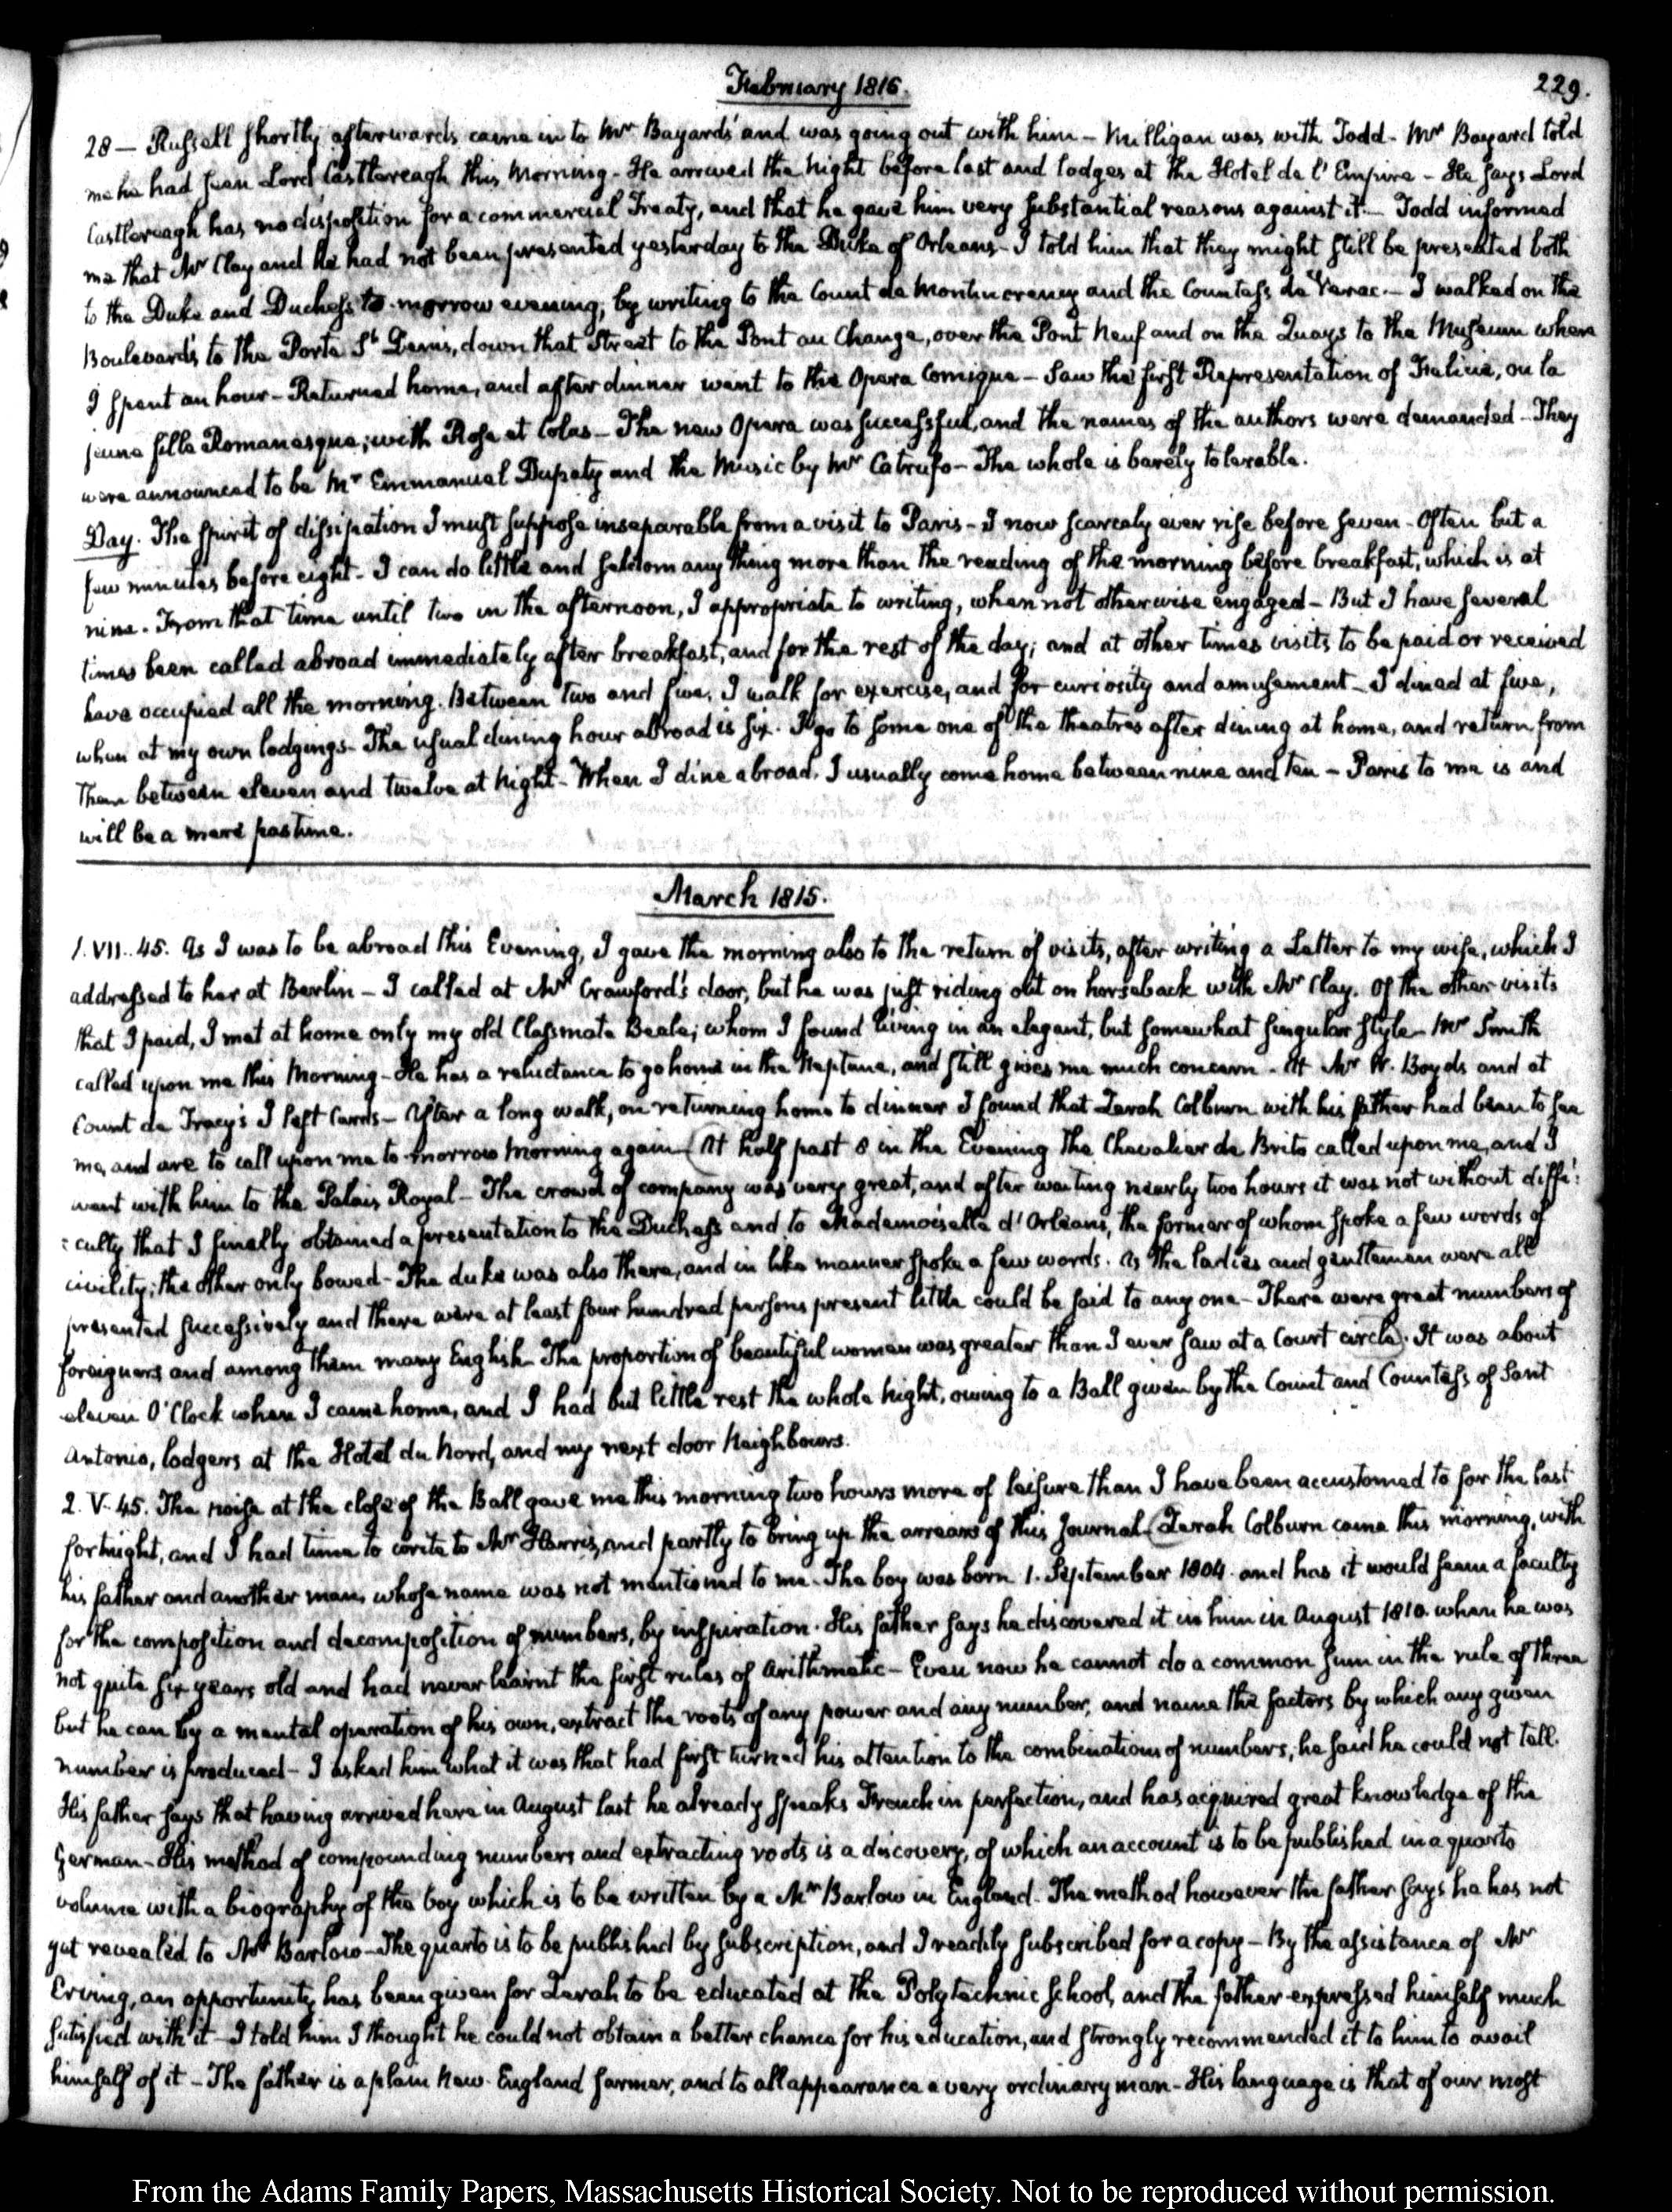 February 1816.
229.
28 — Russell shortly afterwards came in to Mr. Bayards' and was going out with him – Milligan was with Todd – Mr Bayard told
me he had seen Lord Castlereagh this Morning – He arrived the Night before last and lodges at the Hotel de l'Empire – He says Lord
Castlereagh has no disposition for a commercial Treaty, and that he gave him very substantial reasons against it – Todd informed
me that Mr Clay and he had not been presented yesterday to the Duke of Orleans – I told him that they might still be presented both
to the Duke and Duchess to-morrow evening, by writing to the Count de Montmorency and the Countess de Verac. – I walked on the
Boulevards to the Porte St. Denis, down that Street to the Pont au Change, over the Pont Neuf and on the Quays to the Museum where
I spent an hour – Returned home, and after dinner went to the Opera Comique – Saw the first Representation of Felicie, ou la
jeune fille Romanesque; with Rose et Colas – The new Opera was successful, and the names of the authors were demanded – They
were announced to be Mr Emmanuel Dupaty and the Music by Mr Catrufo – The whole is barely tolerable.
Day. The spirit of dissipation I must suppose inseparable from a visit to Paris – I now scarcely ever rise before seven – Often but a
few minutes before eight – I can do little and seldom any thing more than the reading of the morning before breakfast, which is at
nine. From that time until two in the afternoon, I appropriate to writing, when not otherwise engaged – But I have several
times been called abroad immediately after breakfast, and for the rest of the day; and at other times visits to be paid or received
have occupied all the morning. Between two and five, I walk for exercise, and for curiosity and amusement – I dined at five,
when at my own lodgings – The usual dining hour abroad is six. I go to some one of the theatres after dining at home, and return from
them between eleven and twelve at Night – When I dine abroad, I usually come home between nine and ten – Paris to me is and
will be a mere pastime.
March 1815.
1. VII. 45. As I was to be abroad this Evening, I gave the morning also to the return of visits, after writing a Letter to my wife, which I
addressed to her at Berlin – I called at Mr Crawford's door, but he was just riding out on horseback with Mr Clay. Of the other visits
that I paid, I met at home only my old Classmate Beale; whom I found living in an elegant, but somewhat singular style – Mr Smith
called upon me this Morning – He has a reluctance to go home in the Neptune, and still gives me much concern – At Mr W. Boyds and at
Count de Tracy's I left Cards – After a long walk, on returning home to dinner I found that Zerah Colburn with his father had been to see
me, and are to call upon me to-morrow Morning again – (At half past 8 in the Evening the Chevalier de Brito called upon me, and I
went with him to the Palais Royal – The crowd of company was very great, and after waiting nearly two hours it was not without diffi:
:culty that I finally obtained a presentation to the Duchess and to Mademoiselle d'Orléans, the former of whom spoke a few words of
civility; the other only bowed – The duke was also there, and in like manner spoke a few words. As the Ladies and gentlemen were all
presented successively and there were at least four hundred persons present little could be said to any one – There were great numbers of
foreigners and among them many English – The proportion of beautiful women was greater than I ever saw at a Court circle). It was about
eleven O'Clock when I came home, and I had but little rest the whole Night, owing to a Ball given by the Count and Countess of Sant
Antonio, lodgers at the Hotel du Nord, and my next door Neighbours.
2. V. 45. The noise at the close of the Ball gave me this morning two hours more of leisure than I have been accustomed to for the last
fortnight, and I had time to write to Mr Harris, and partly to bring up the arrears of this Journal – (Zerah Colburn came this morning, with
his father and another man, whose name was not mentioned to me – The boy was born 1. September 1804. and has it would seem a faculty
for the composition and decomposition of numbers, by inspiration. His father says he discovered it in him in August 1810. when he was
not quite six years old and had never learnt the first rules of Arithmetic – Even now he cannot do a common sum in the rule of three
but he can by a mental operation of his own, extract the roots of any power and any number, and name the factors by which any given
number is produced – I asked him what it was that had first turned his attention to the combinations of numbers, he said he could not tell.
His father says that having arrived here in August last he already speaks French in perfection, and has acquired great knowledge of the
German – His method of compounding numbers and extracting roots is a discovery, of which an account is to be published in a quarto
volume with a biography of the boy which is to be written by a Mr Barlow in England – The method however the father says he has not
yet revealed to Mr Barlow – The quarto is to be published by subscription, and I readily subscribed for a copy – By the assistance of Mr
Erving, an opportunity has been given for Zerah to be educated at the Polytechnic School, and the father expressed himself much
satisfied with it – I told him I thought he could not obtain a better chance for his education, and strongly recommended it to him to avail
himself of it – The father is a plain New-England farmer, and to all appearance a very ordinary man – His language is that of our most
From the Adams Family Papers, Massachusetts Historical Society. Not to be reproduced without permission.